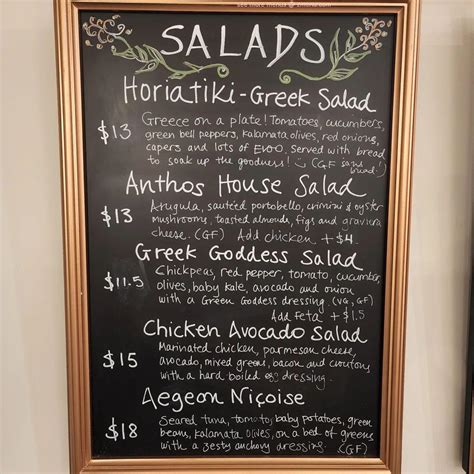 SALADS
Horiatiki - Greek Salad
$13
Greece on a plate! Tomatoes, cucumbers,
green bell peppers, kalamata olives, red onions,
capers and lots of EVOO. Served with bread
to soak up the goodness! (GF sans
bread)
Anthos House Salad
$13
Arugula, sautéed portobello, crimini & oyster
mushrooms, toasted almonds, figs and graviera
cheese. (GF) Add chicken + $4
Greek Goddess Salad
$11.5
Chickpeas, red pepper, tomato, cucumber,
olives, baby kale, avocado and onion
with a Green Goddess dressing. (VG, GF)
Add feta + $1.5
Chicken Avocado Salad
$15
Marinated chicken, parmesan cheese,
avocado, mixed greens, bacon and croutons,
with a hard boiled egg dressing.
Aegeon Niçoise
$18
Seared tuna, tomato, baby potatoes, green
beans, kalamata olives, on a bed of greens
with a zesty anchovy dressing. (GF)